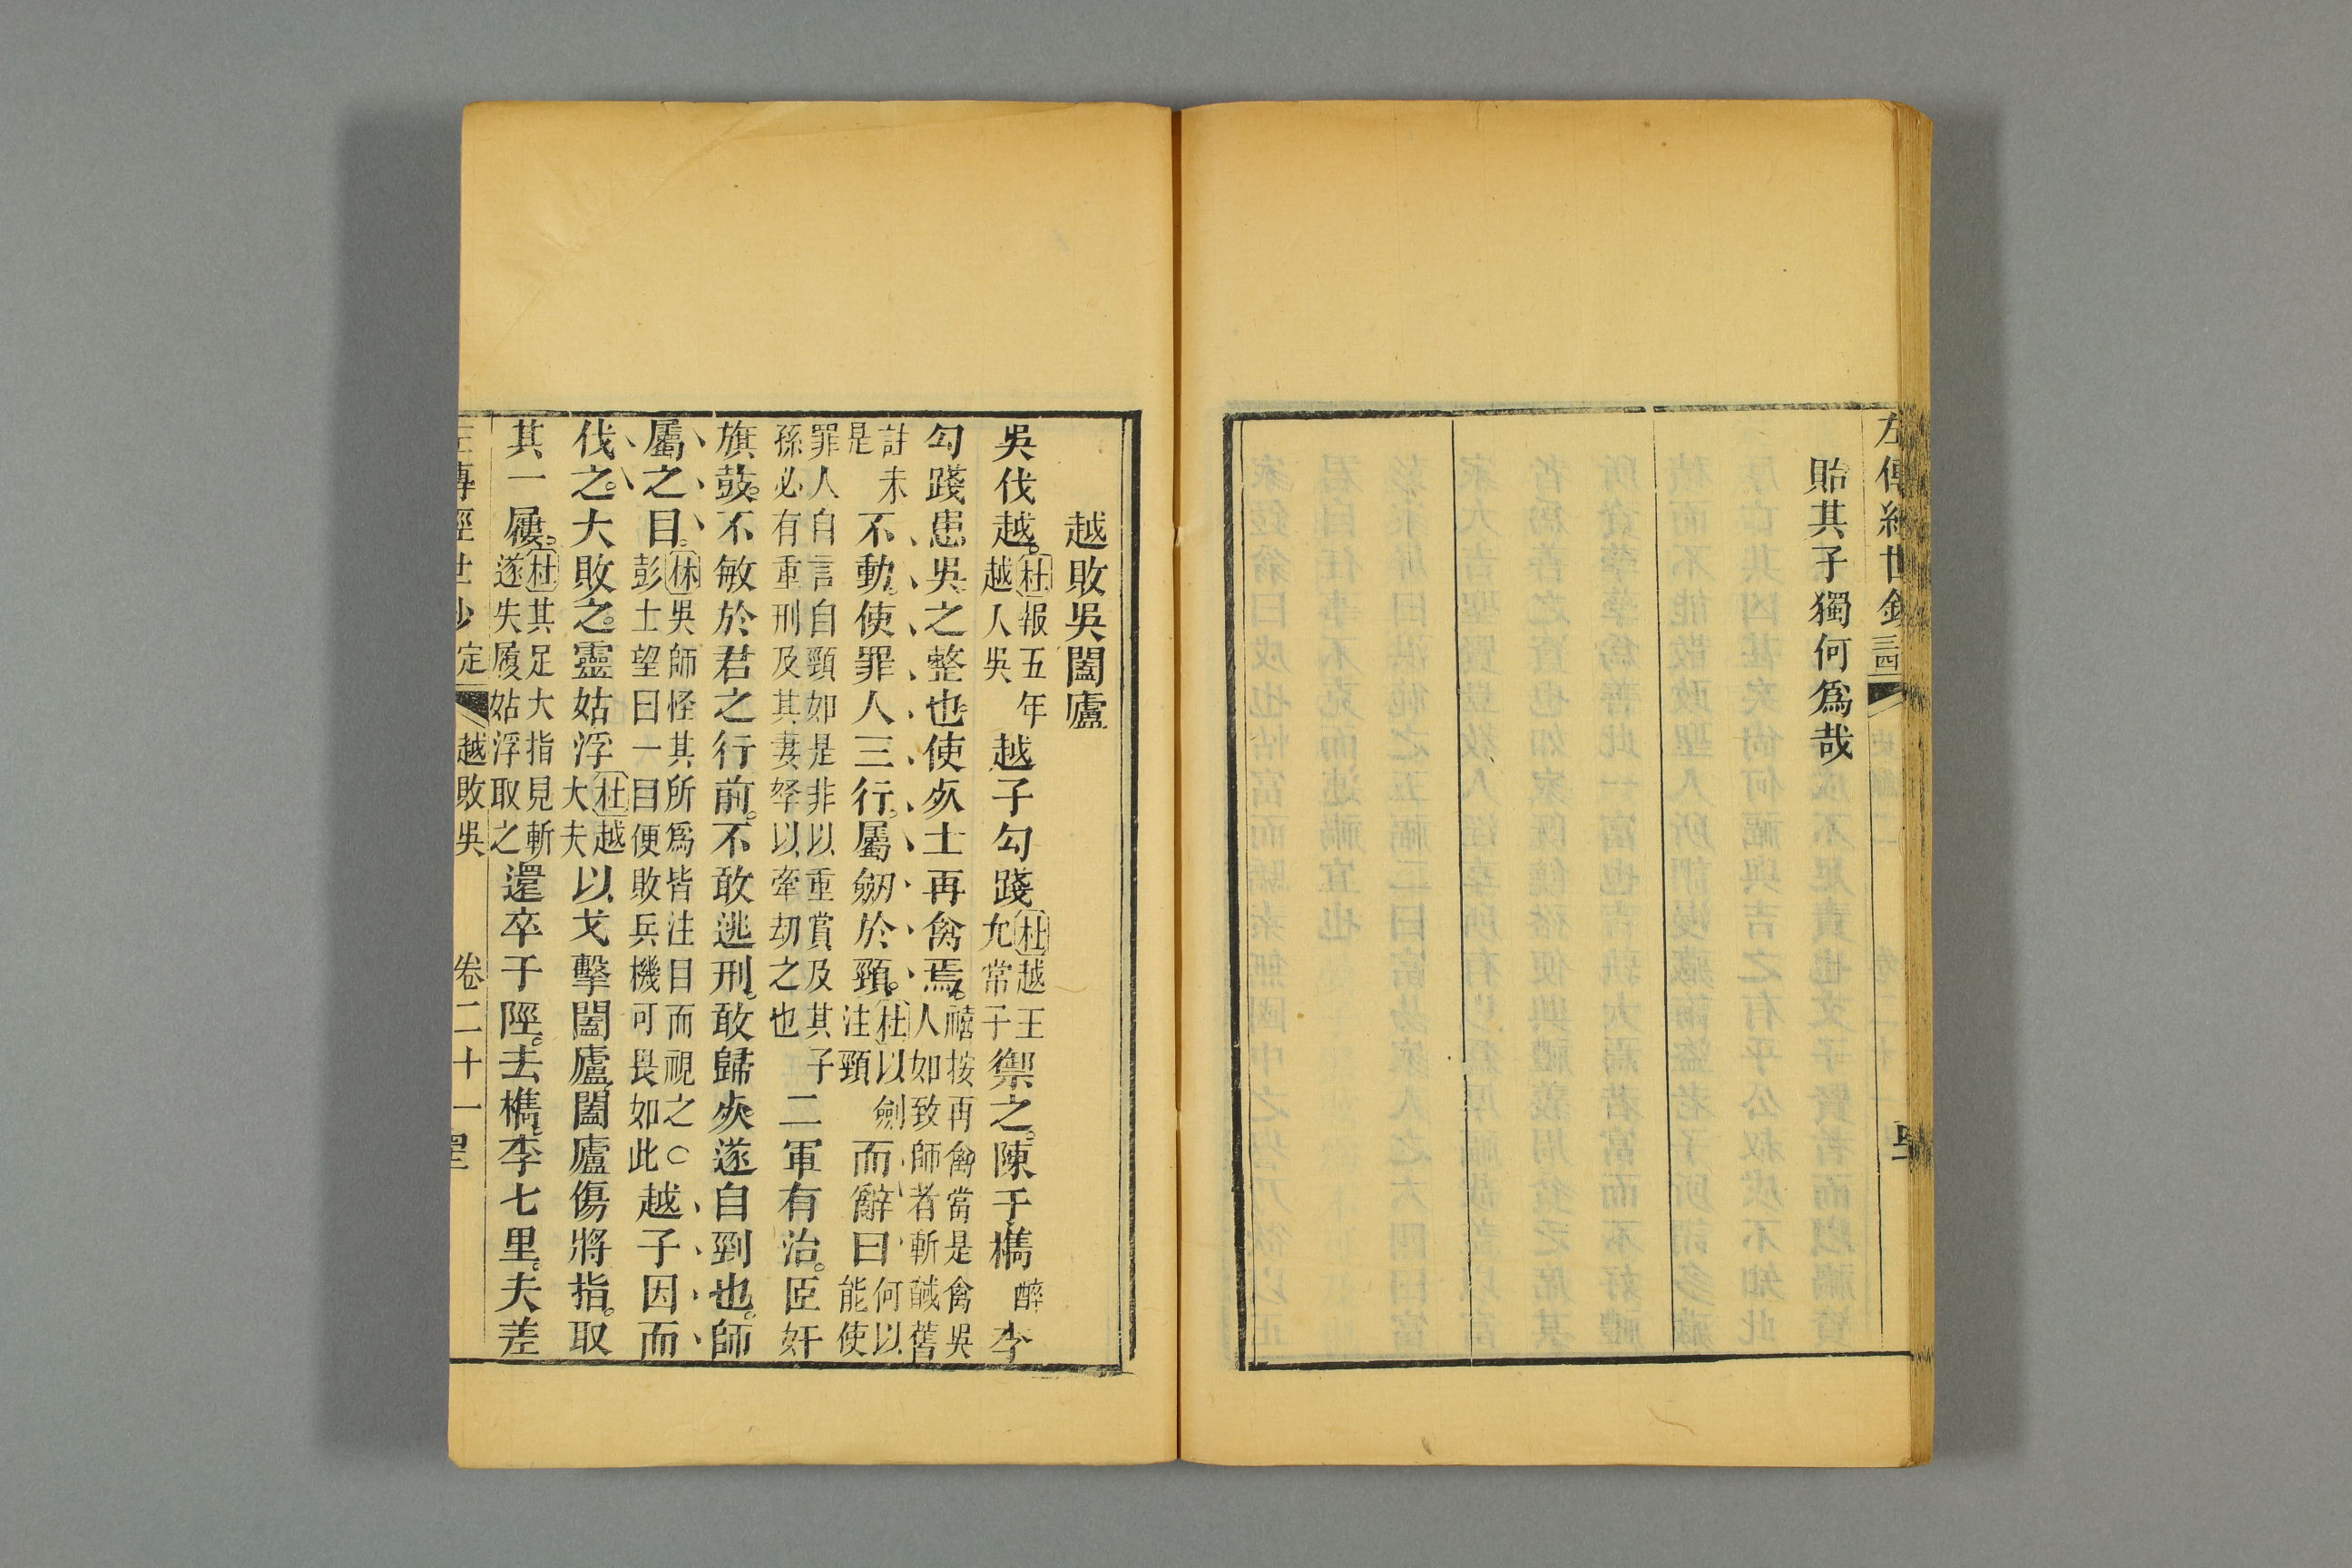 左傳經世鈔
貽其子獨何爲哉
越敗吳闔廬
吳伐越杜報五年越人吳越子勾踐杜越王允常子禦之陳于檇醉李
勾踐患吳之整也使死士再禽焉禧按再禽當是禽吳人如致師者斬馘舊
註未是不動使罪人三行屬劒於頸杜以劍注頸而辭曰何以能使
罪人自言自頸如是非以重賞及其子孫必有重刑及其妻孥以牽劫之也二軍有治臣奸
旗鼓不敏於君之行前不敢逃刑敢歸死遂自剄也師
屬之目林吳師怪其所爲皆注目而視之○彭士望曰一目便敗兵機可畏如此越子因而
伐之大敗之靈姑浮杜越大夫以戈擊闔廬闔廬傷將指取
其一屨杜其足大指見斬遂失屨姑浮取之還卒于陘去檇李七里夫差
越敗吳 卷二十一